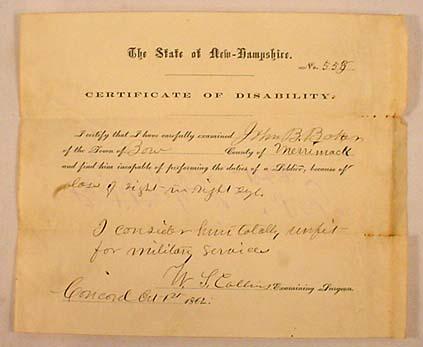 The State of New-Hampshire.
No. 555
CERTIFICATE OF DISABILITY.
I certify that I have carefully examined John B. Baker
of the Town of Bow County of Merrimack
and find him incapable of performing the duties of a Soldier, because of
loss of sight in right eye.
I consider him totally unfit
for military service
W. S. Collins Examining Surgeon.
Concord Oct 1st 1862.